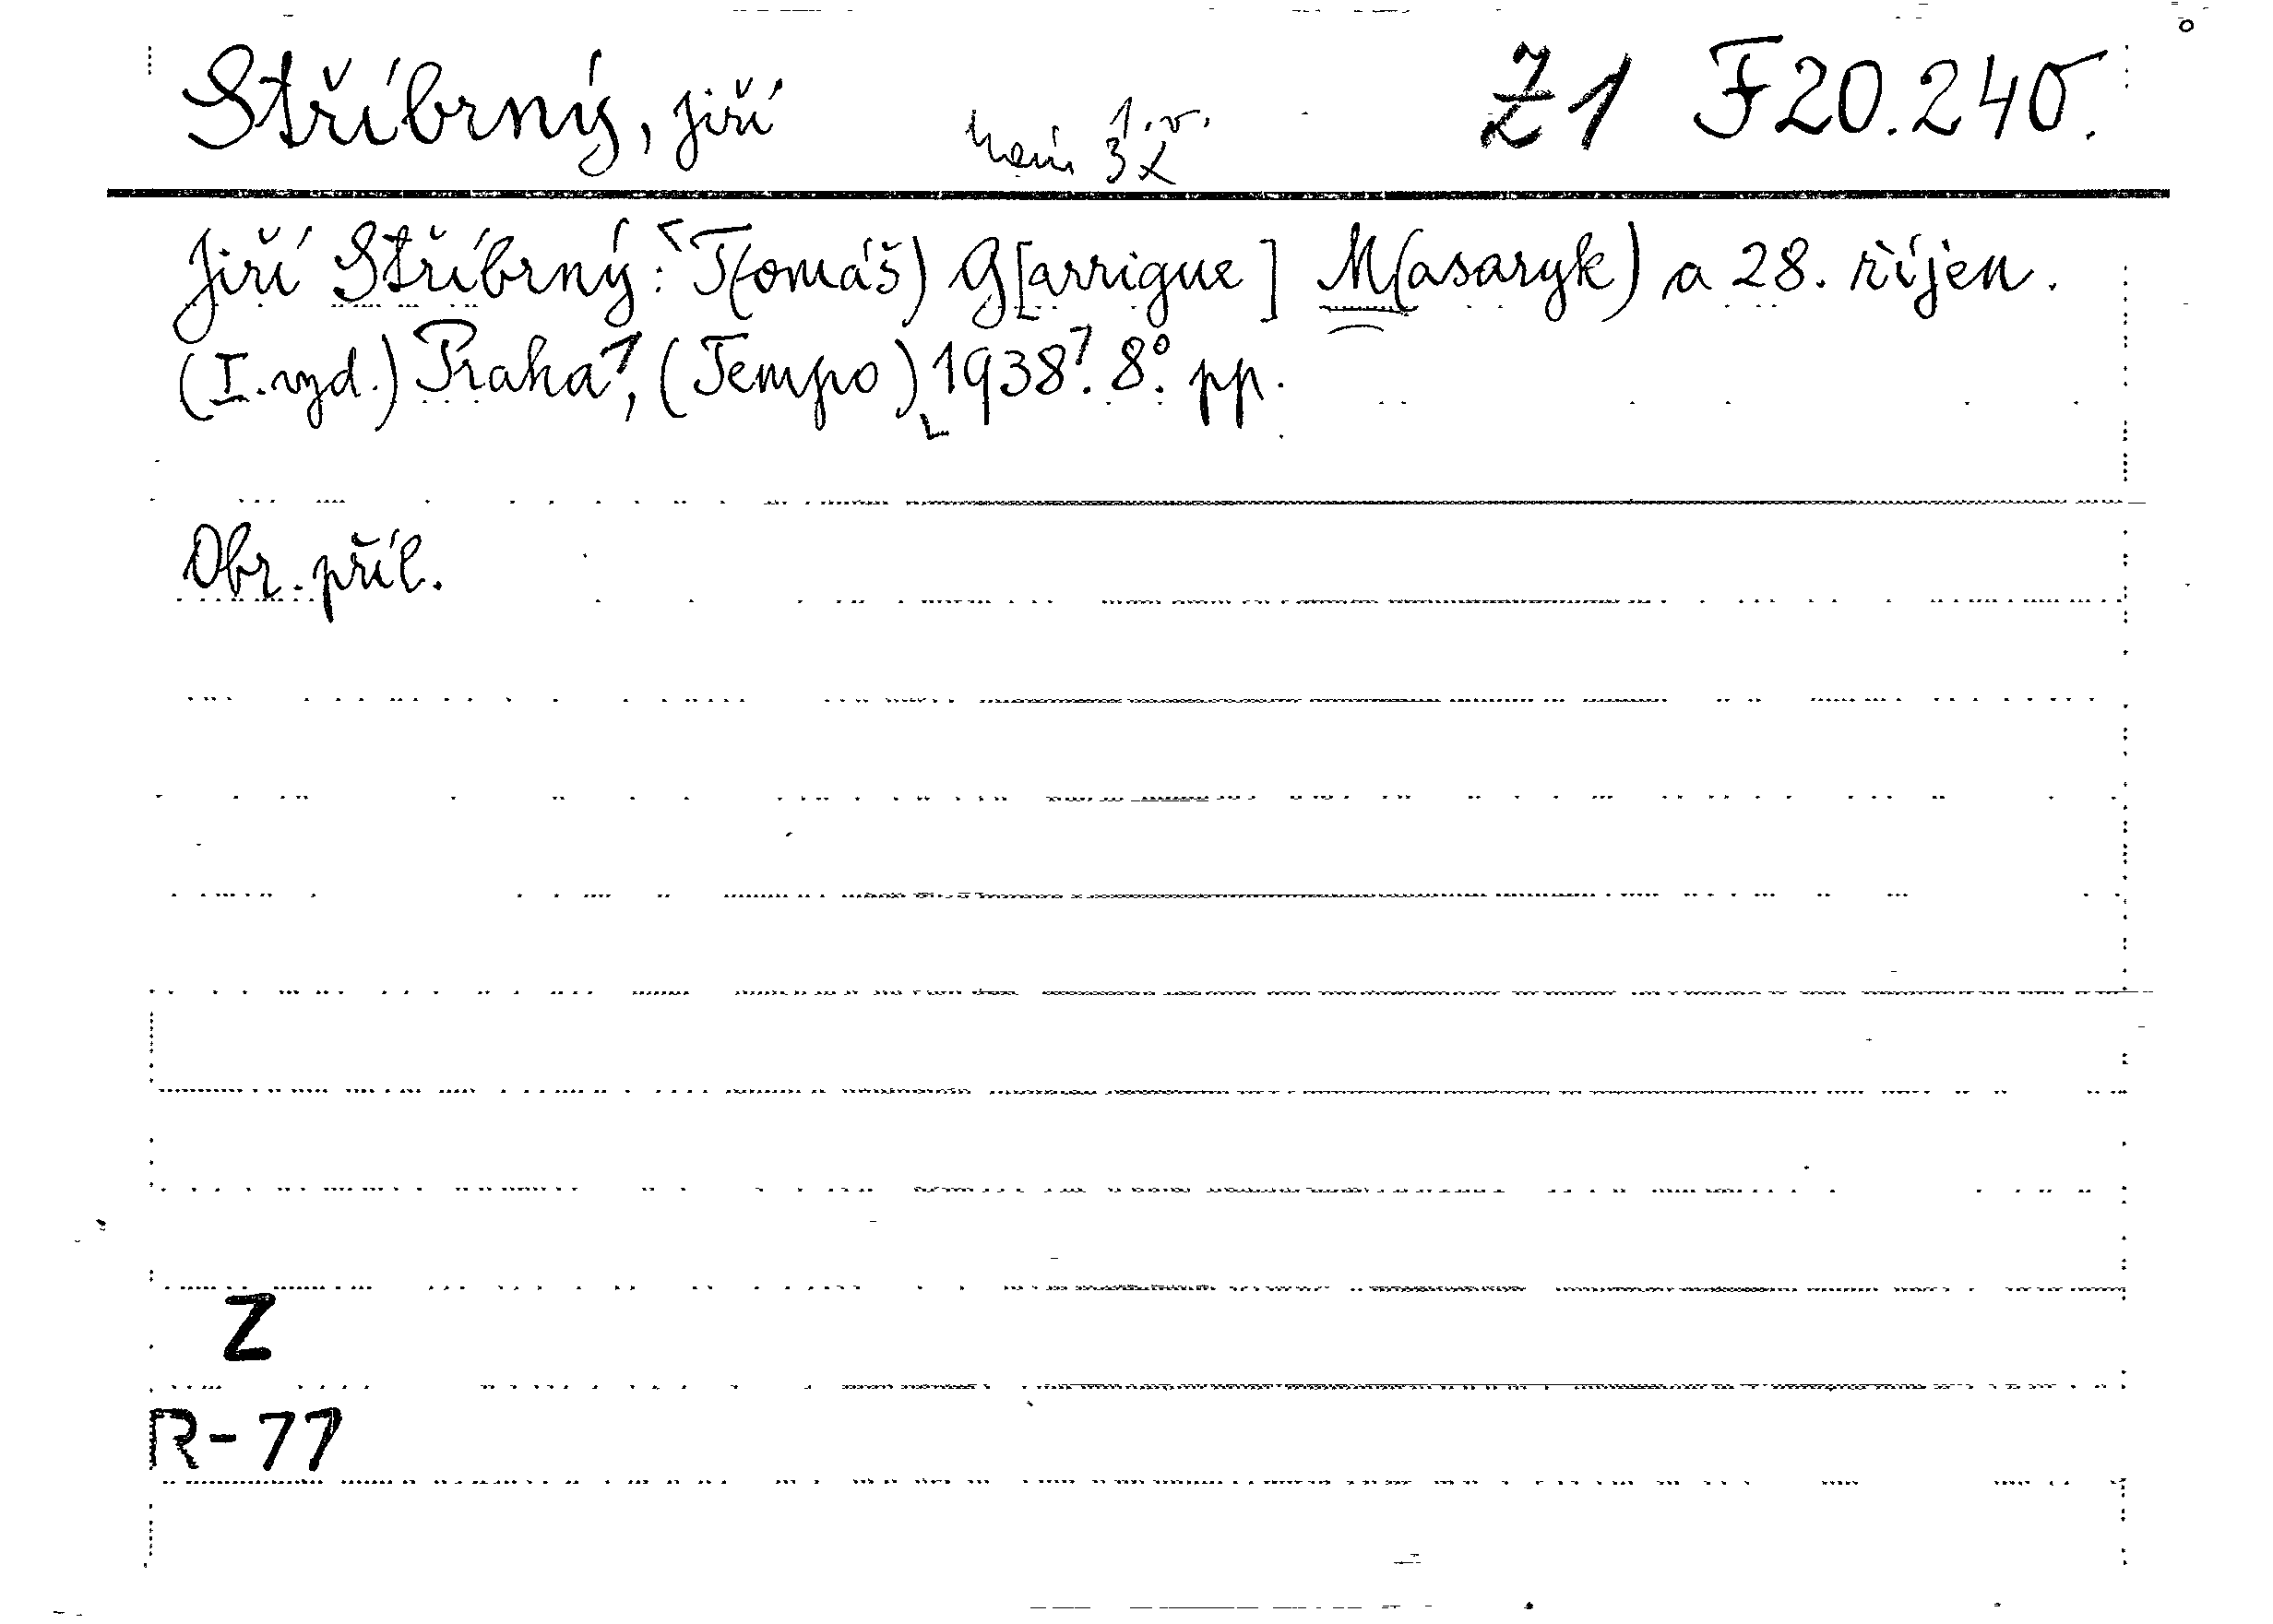 Stříbrný, Jiří 1.v. Ž1 F20.240.
není 3x
Jiří Stříbrný: T(omáš) G[arrigue] M(asaryk) a 28. říjen.
(I. vyd.) Praha, (Tempo) 1938. 8°. pp.
Obr. příl.
Z
R-77